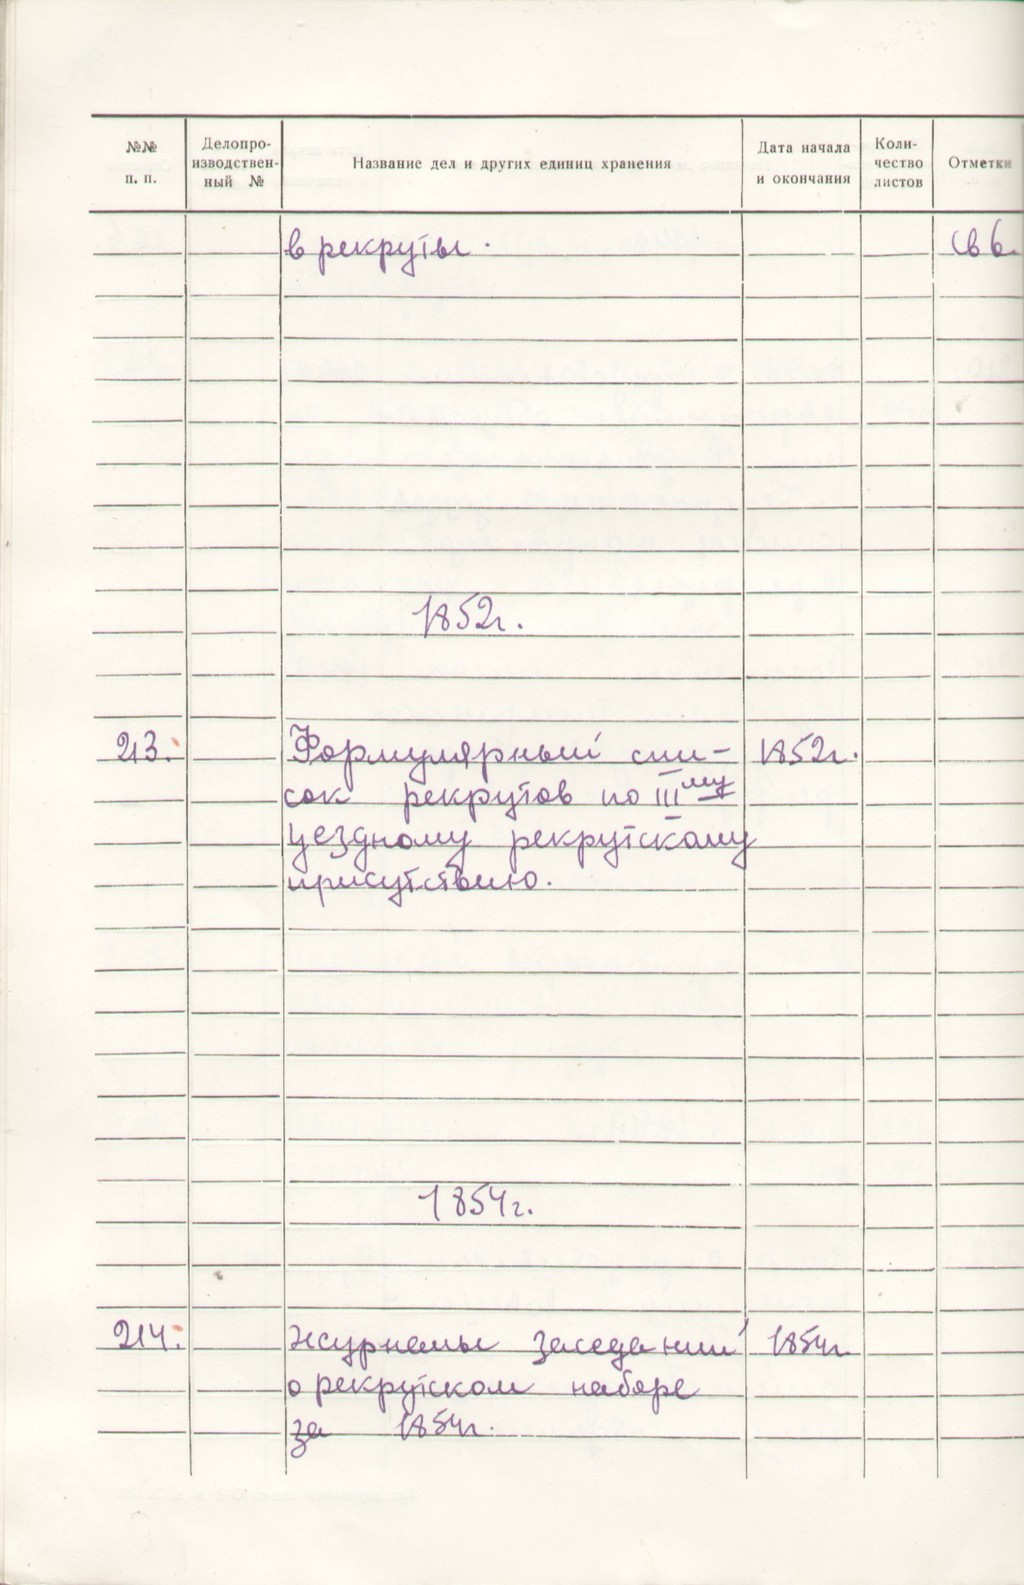 №№ п. п.
Делопро-
изводствен-
ный №
Название дел и других единиц хранения
Дата начала
и окончания
Коли-
чество
листов
Отметки
в рекруты.
св 6.
1852г.
213. Формулярный спи- 1852г.
сок рекрутов по III му
уездному рекрутскому
присутствию.
1854г.
214. Журналы заседаний 1854г.
о рекрутском наборе
за 1854г.